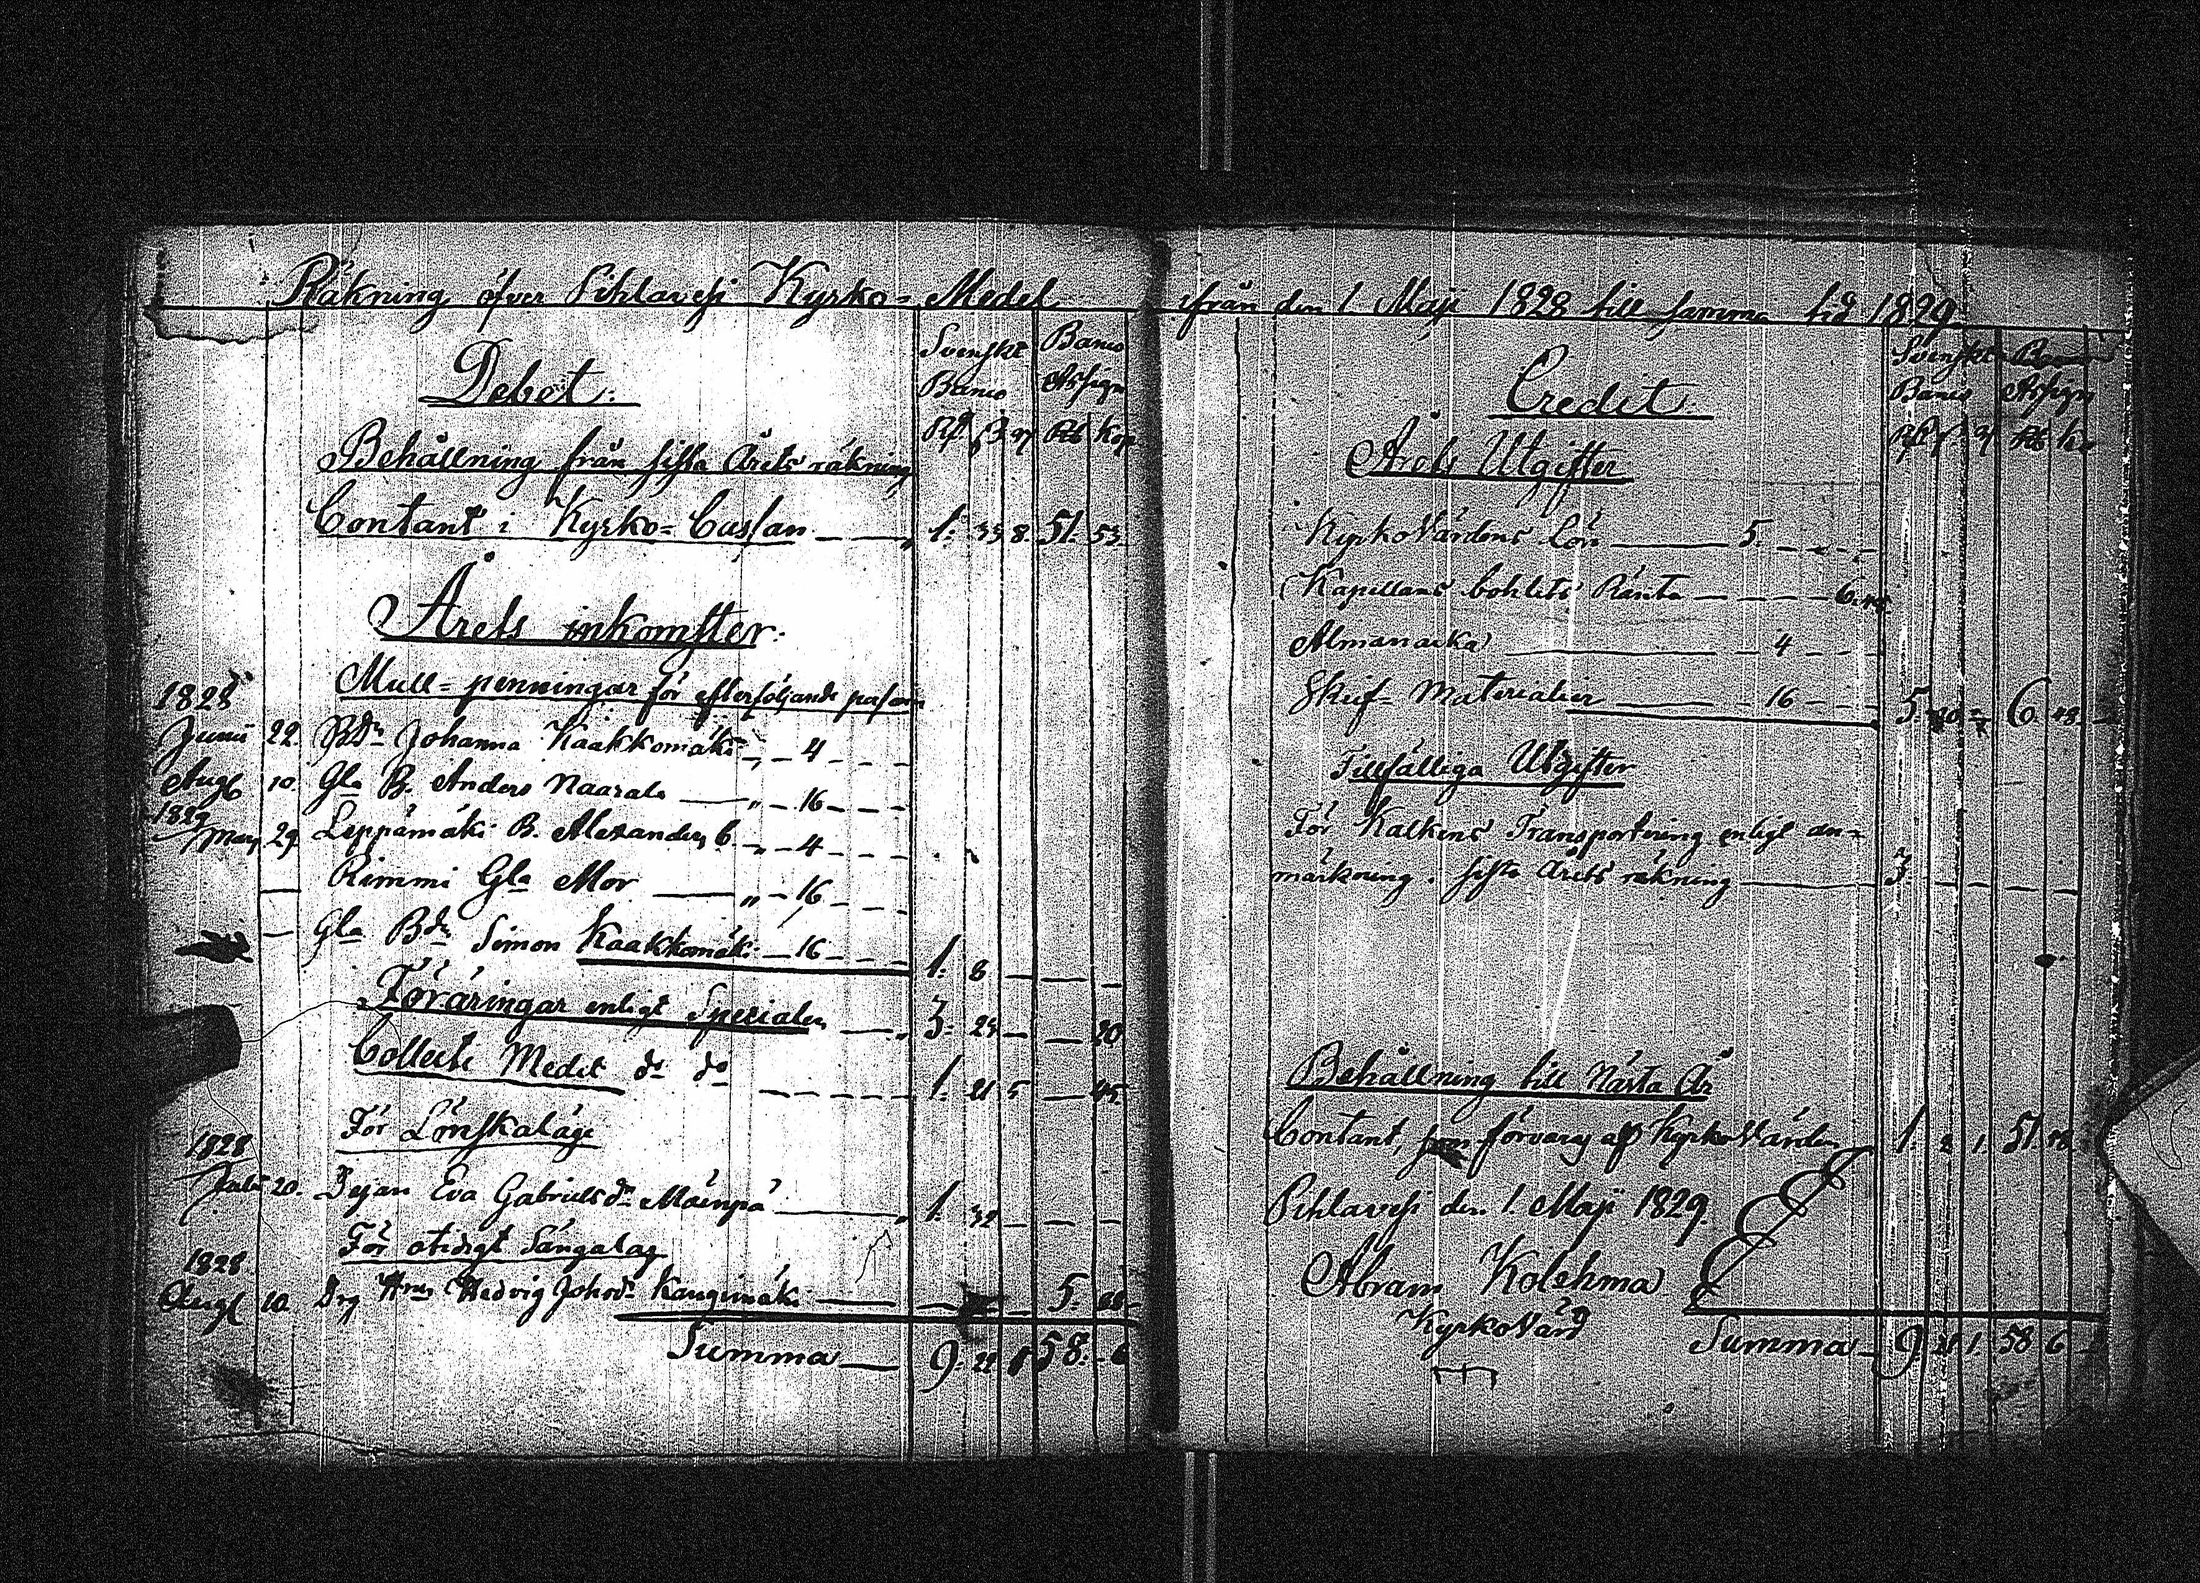 Räkning öfver Pihlavesi Kyrko= Medel
Svenskt Banco
Debet:
Banco Assign
Rd ß rs Rb Kop
Behållning från sista Årets räkning
Contant i Kyrko= Cassan 1. 33 8. 51. 53.
Årets inkomster:
Mull= penningar för efterföljande
1828
Junii 22. Johanna Kaakkomäki 4
Aug 10. Gla B. Anders Naarala 16
1829
Mars 29 Leppämäki B. Alexanders b. 4
Rimmi Gla Mor 16
Gla Bdn Simon Kaakkomäki 16 1. 8
Föräringar enligt Specialen 3. 20
Collect Medel do do 1. 21 5 45
För Lönskaläge
1828
Julii 20. Pejan Eva Gabrielsdr Mäenpä 1. 32
För otidigt Sängalag
1828
Aug 10. Drg Hedvig Johsdr Kangimäki 5.
Summa 9. 22 58. 6
ifrån den 1 Maji 1828 till samma tid 1829.
Svenskt Banco
Credit
Banco Assign
Årets Utgifter
KyrkoVärdens Lön 5.
Kapellans bohlets Ränta 6. 48
Almanacka 4
Skrif= Materialier 16 5. 20 6. 48.
Tillfälliga Utgifter
För Kalkens Transportering enligt an=
märkning i sista Årets räkning 3
Behållning till Nästa År
Contant, förvary af KyrkoVärden 1. 2 1. 51. 18.
Pihlavesi den 1 Maji 1829.
Abram Kolehma
KyrkoVärd
Summa 9. 21 1. 58 6